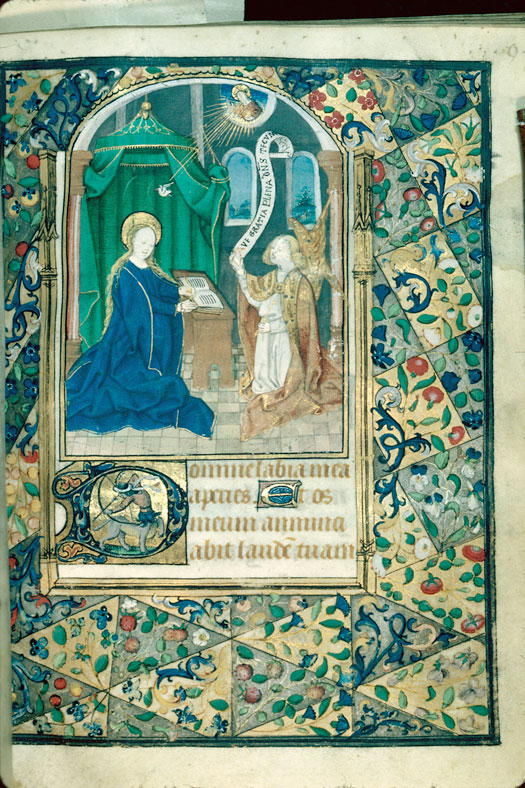 AVE GRATIA PLENA DNS TECUM
Domine labia mea
aperies. Et os
meum annunci
abit laudē tuam